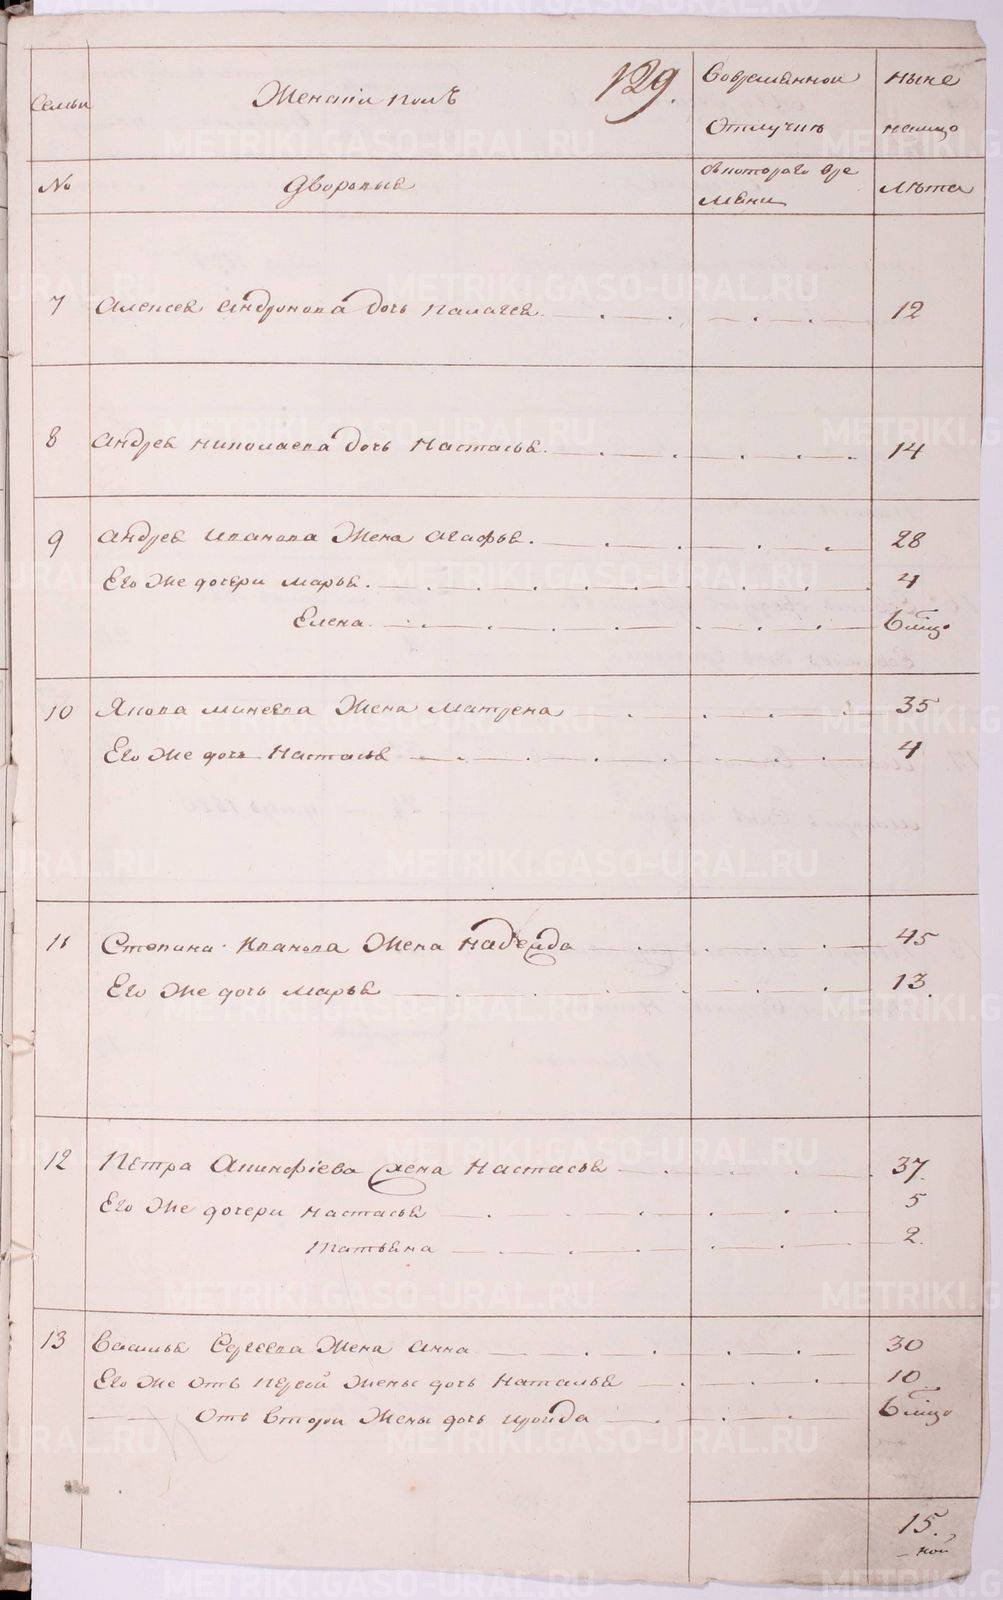 Семьи
Женскiй полъ
129.
Во временной
ныне
Отлучке
налицо
№
Дворовые
Скоторого вре
Лета
мени
7 Алексея Андронова дочь Палагея 12
8 Андрея Николаева дочь Настасья 14
9 Андрея Иванова Жена Агафья. 28
Его Же дочери Марья. 4
Елена. 6 мцо
10 Якова Минеева Жена Матрена 35
Его Же дочь Настасья 4
11 Степана Иванова Жена Надежда 45
Его Же дочь Марья 13.
12 Петра Акинфiева Жена Настасья 37.
Его Же дочери Настасья 5
Татьяна 2.
13 Василья Сергеева Жена Анна 30
Его Же Отъ первой Жены дочь Наталья 10
Отъ второй Жены дочь Ираида 6 мцо
15.
METRIKI.GASO-URAL.RU